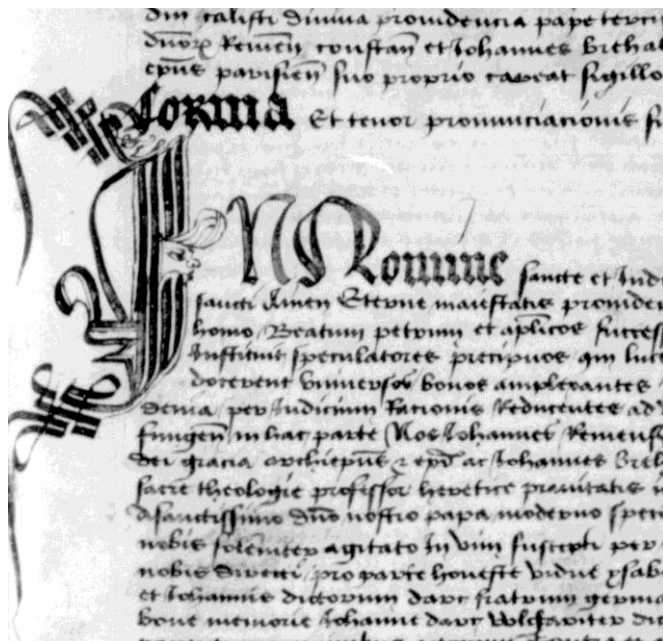 dm̄ calisti divina providencia pape terci
dn̄orꝝ Remen̄ constan̄ et Johannes Brehal
ep̄us parisien̄ suo proprio caveat sigillo
Forma Et tenor pronunciacionis
IN Nomine sancte et Ind
sancti Amen Eterne maiestatis providen
homo Beatum petrum et ap̄licos success
Instituit speculatores precipuos qui luc
docerent universos bonos amplexantes
denia per Iudicium Racionis Reducentes ad
fungen̄ in hac parte Nos Johannes Remens
dei gracia archiep̄us et ep̄i ac Johannes Breh
sacre theologie professor heretice pravitatis
A sanctissimo dn̄o nostro papa moderno spec
nobis solēniter agitato In vim suscepti per
nobis directi pro parte honeste vidue ysab
et Johannis dictorum darc fratrum germa
bone memorie Johanne darc vulgariter di